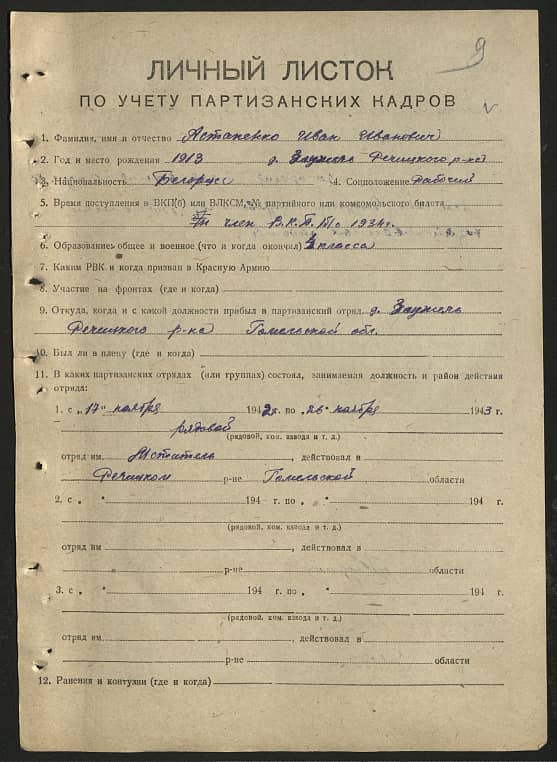 9
ЛИЧНЫЙ ЛИСТОК
ПО УЧЕТУ ПАРТИЗАНСКИХ КАДРОВ
1. Фамилия, имя и отчество Астапенко Иван Иванович
2. Год и место рождения 1913 д. Речицкого р-на
3. Национальность Белорус 4. Соцположение Рабочий
5. Время поступления в ВКП(б) или ВЛКСМ, № партийного или комсомольского билета
член В.К.П.
6. Образование общее и военное (что и когда окончил) 4 класса
7. Каким РВК и когда призван в Красную Армию
8. Участие на фронтах (где и когда)
9. Откуда, когда и с какой должности прибыл в партизанский отряд д.
Речицкого р-на Гомельской обл.
10. Был ли в плену (где и когда)
11. В каких партизанских отрядах (или группах) состоял, занимаемая должность и район действия
отряда:
1. с „17" ноября 1942 г. по „26" ноября 1943 г.
рядовой
(рядовой, ком. взвода и т. д.)
отряд им. Мститель, действовал в
Речицком р-не Гомельской области
2. с „ " 194 г. по „ " 194 г.
(рядовой, ком. взвода и т. д.)
отряд им , действовал в
р-не области
3. с „ " 194 г. по „ " 194 г.
(рядовой, ком. взвода и т. д.)
отряд им. , действовал в
р-не области
12. Ранения и контузии (где и когда)